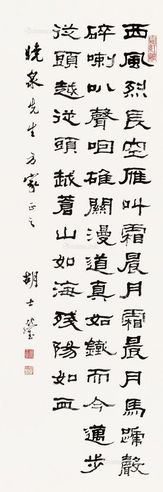 西風烈長空雁叫霜晨月霜晨月馬蹄聲
碎喇叭聲咽雄關漫道真如鐵而今邁步
從頭越從頭越蒼山如海殘陽如血
曉泉先生方家正之 胡士瑩